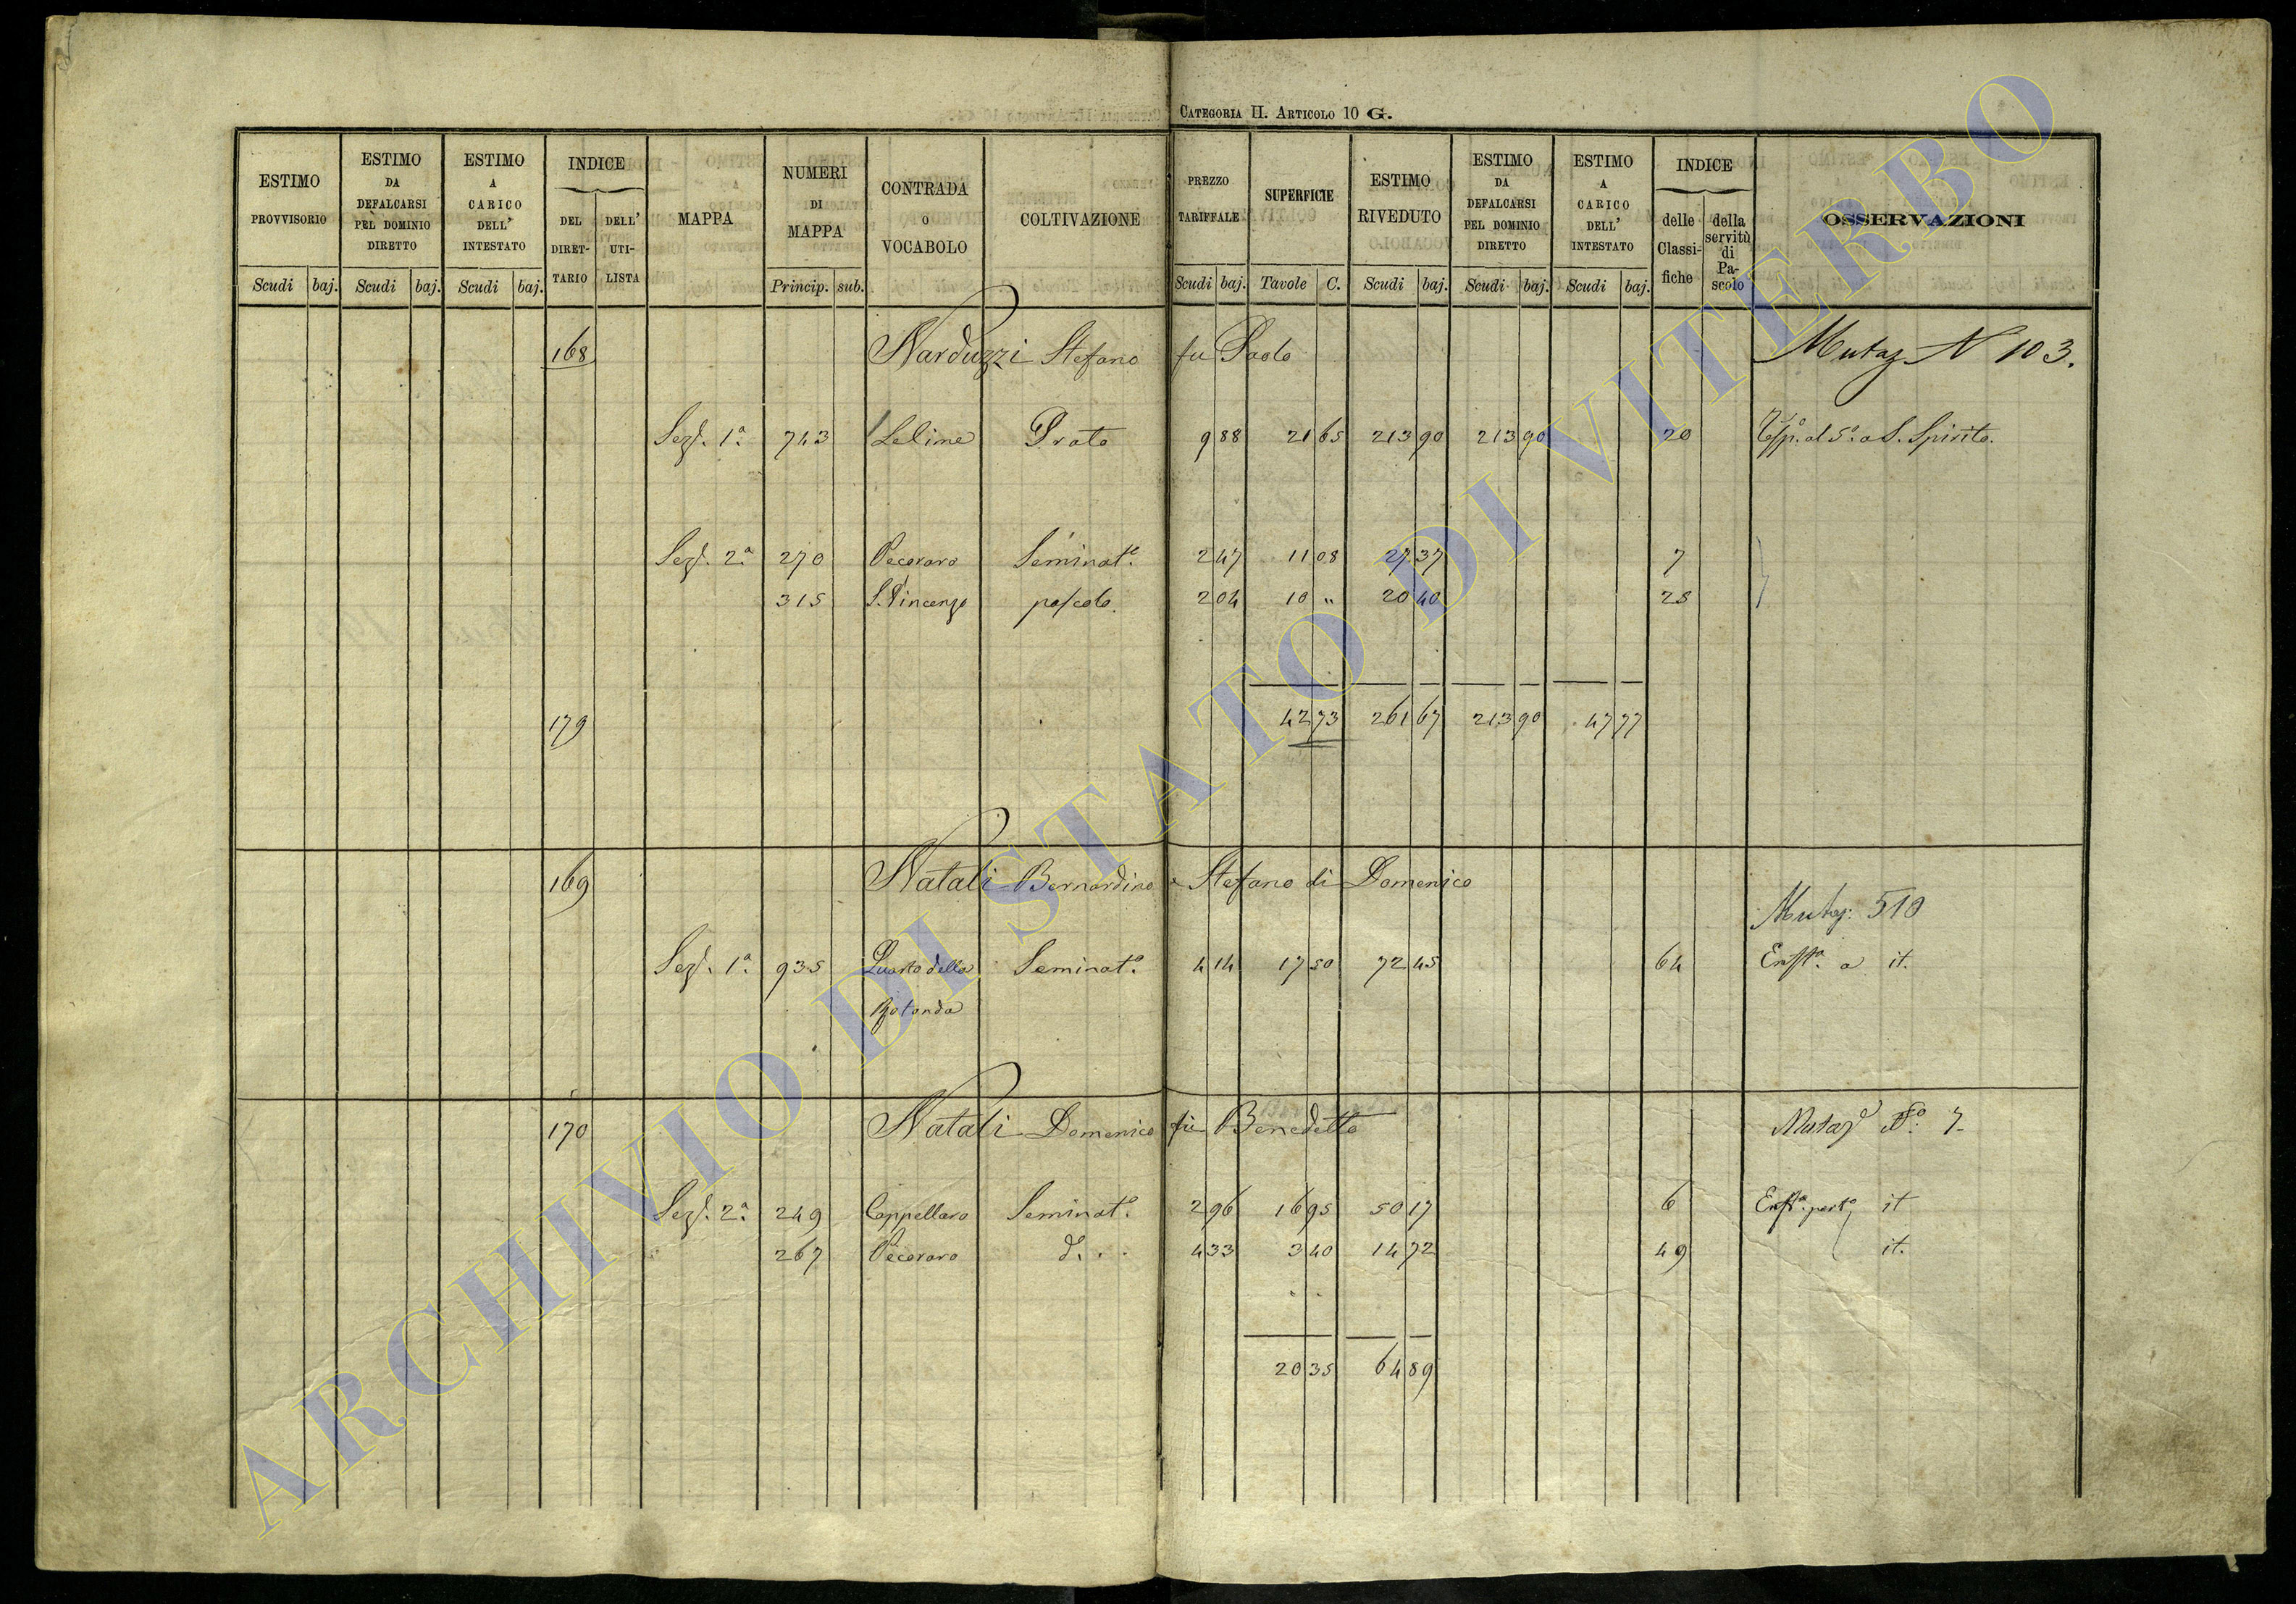 CATEGORIA II. ARTICOLO 10 G.
ESTIMO PROVVISORIO Scudi baj.
ESTIMO DA DEFALCARSI PEL DOMINIO DIRETTO Scudi baj.
ESTIMO A CARICO DELL' INTESTATO Scudi baj.
INDICE DEL DIRETTARIO DELL' UTILISTA
MAPPA
NUMERI DI MAPPA Princip. sub.
CONTRADA O VOCABOLO
COLTIVAZIONE
PREZZO TARIFFALE Scudi baj.
SUPERFICIE Tavole C.
ESTIMO RIVEDUTO Scudi baj.
ESTIMO DA DEFALCARSI PEL DOMINIO DIRETTO Scudi baj.
ESTIMO A CARICO DELL' INTESTATO Scudi baj.
INDICE delle Classifiche della servitù di Pascolo
OSSERVAZIONI
168 Narduzzi Stefano fu Paolo Mutaz N 103.
Sez. 1ª 743 Lelime Prato 9 88 21 65 213 90 213 90 20 al 5º a S. Spirito.
Sez. 2ª 270 Pecoraro Seminatº 2 47 11 08 27 37 7
315 S. Vincenzo pascolo. 2 04 10 " 20 40 28
179 42 73 261 67 213 90 47 77
169 Natali Bernardino e Stefano di Domenico
Mutaz: 510
Sez. 1ª 935 Quarto della Seminatº 4 14 17 50 72 45 64 Enftª a it.
Rotonda
170 Natali Domenico fu Benedetto Mutazº Nº 7
Sez. 2ª 249 Cappellaro Seminatº 2 96 16 95 50 17 6 Enftª perpª it
267 Pecoraro dº 4 33 3 40 14 72 49 it.
20 35 64 89
ARCHIVIO DI STATO DI VITERBO